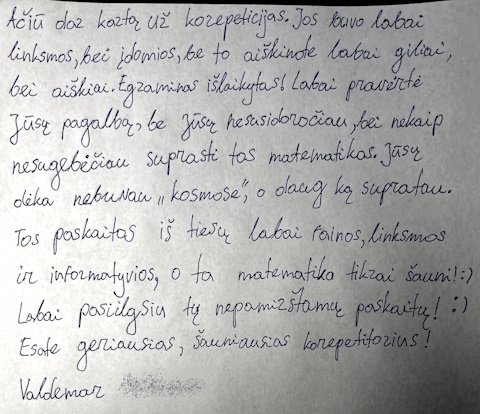 Ačiū dar kartą už korepeticijas. Jos buvo labai
linksmos, bei įdomios, be to aiškinote labai giliai,
bei aiškiai. Egzaminas išlaikytas! Labai pravertė
Jūsų pagalba, be Jūsų nesusidoročiau, bei nekaip
nesugebėčiau suprasti tas matematikas. Jūsų
dėka nebuvau „kosmose", o daug ką supratau.
Tos paskaitos iš tiesų labai fainos, linksmos
ir informatyvios, o ta matematika tikrai šauni! :)
Labai pasiilgsiu tų nepamirštamų paskaitų! :)
Esate geriausias, šauniausias korepetitorius!
Valdemar